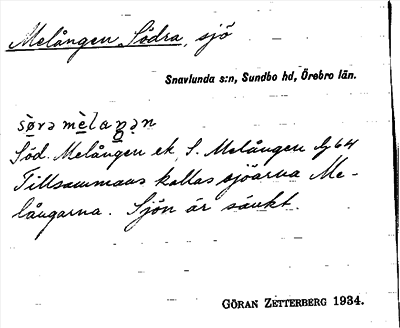 Melången, Södra, sjö
Snavlunda s:n, Sundbo hd, Örebro län.
Söd. Melången ek, S. Melången
Tillsammans kallas sjöarna Me-
långarna. Sjön är sänkt.
GÖRAN ZETTERBERG 1934.